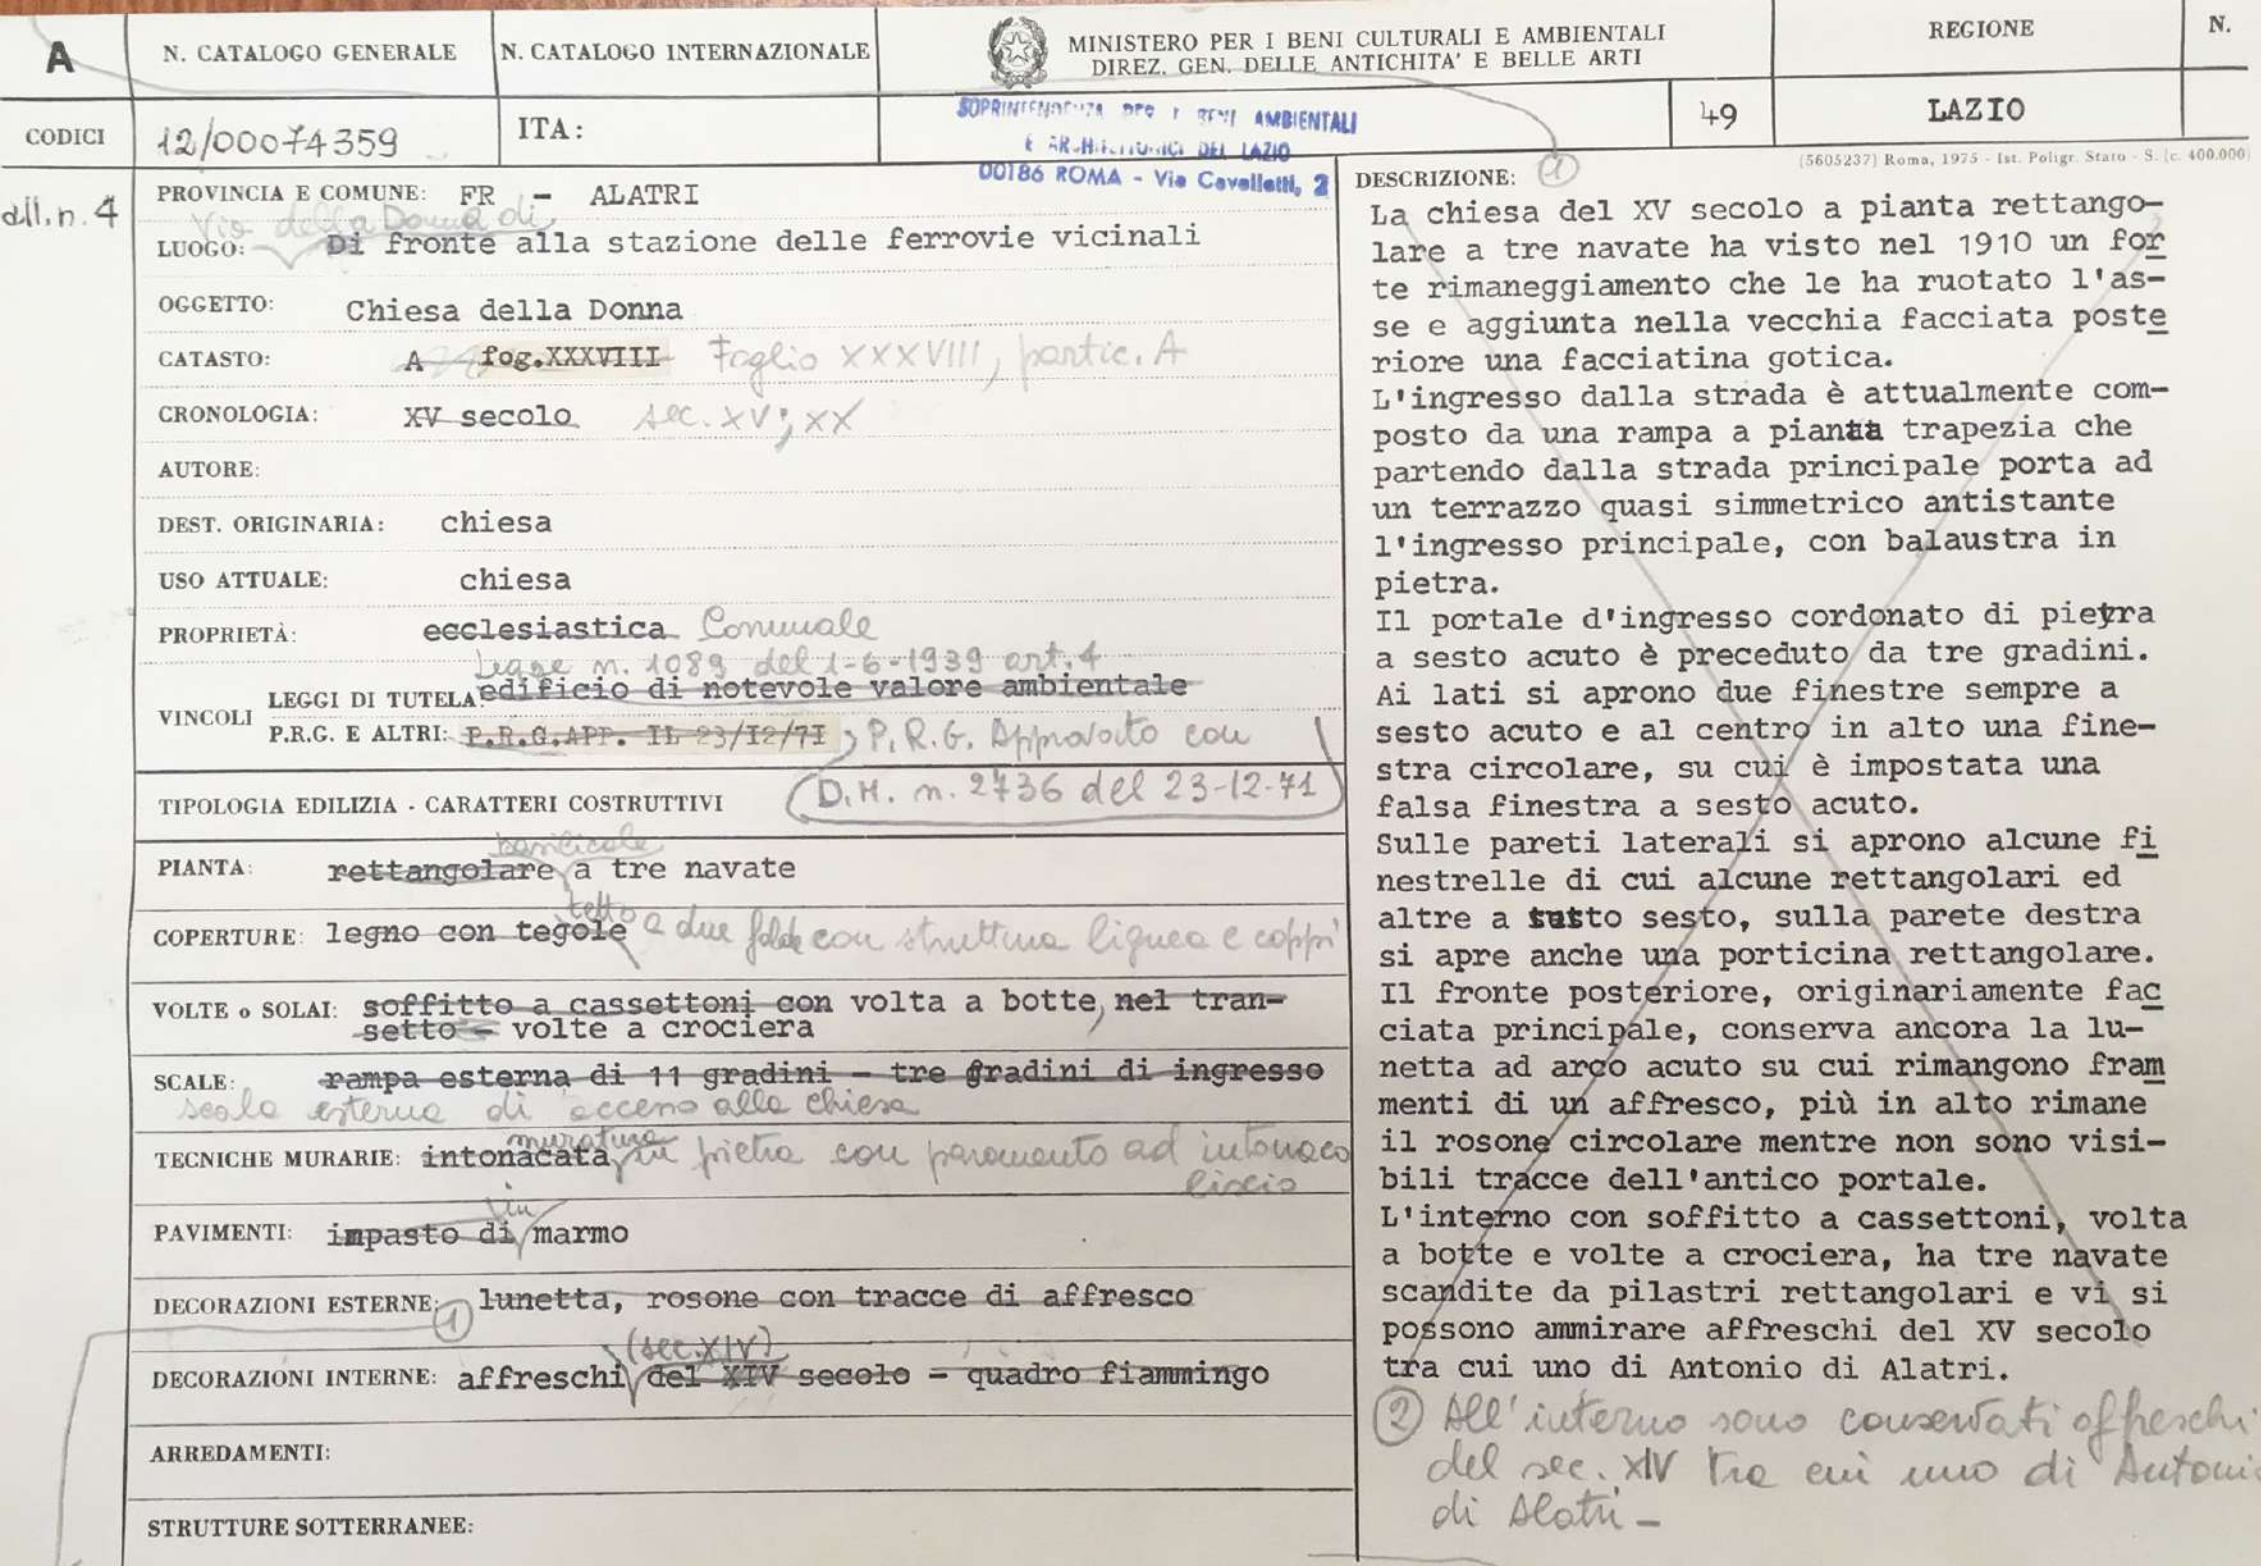 A
N. CATALOGO GENERALE
N. CATALOGO INTERNAZIONALE
MINISTERO PER I BENI CULTURALI E AMBIENTALI
DIREZ. GEN. DELLE ANTICHITA' E BELLE ARTI
REGIONE
N.
CODICI
12/00074359
ITA:
SOPRINTENDENZA PER I BENI AMBIENTALI
E ARCHITETTONICI DEL LAZIO
00186 ROMA - Via Cavalletti, 2
49
LAZIO
(5605237) Roma, 1975 - Ist. Poligr. Stato - S. (c. 400.000)
all. n. 4
PROVINCIA E COMUNE: FR - ALATRI
Via della Donna di
LUOGO: Di fronte alla stazione delle ferrovie vicinali
OGGETTO: Chiesa della Donna
CATASTO: A fog.XXXVIII Foglio XXXVIII, partic. A
CRONOLOGIA: XV secolo sec. XV; XX
AUTORE:
DEST. ORIGINARIA: chiesa
USO ATTUALE: chiesa
PROPRIETÀ: ecclesiastica Comunale
Legge n. 1089 del 1-6-1939 art. 4
VINCOLI
LEGGI DI TUTELA: edificio di notevole valore ambientale
P.R.G. E ALTRI: P.R.G.APP. IL 23/I2/7I ; P.R.G. Approvato con
D.M. n. 2736 del 23-12-71
TIPOLOGIA EDILIZIA - CARATTERI COSTRUTTIVI
basilicale
PIANTA: rettangolare a tre navate
tetto
COPERTURE: legno con tegole a due falde con struttura lignea e coppi
VOLTE o SOLAI: soffitto a cassettoni con volta a botte, nel tran-
setto - volte a crociera
SCALE: rampa esterna di 11 gradini - tre gradini di ingresso
scala esterna di accesso alla chiesa
muratura
TECNICHE MURARIE: intonacata in pietra con paramento ad intonaco
liscio
in
PAVIMENTI: impasto di marmo
DECORAZIONI ESTERNE: lunetta, rosone con tracce di affresco
1
(sec. XIV)
DECORAZIONI INTERNE: affreschi del XIV secolo - quadro fiammingo
ARREDAMENTI:
STRUTTURE SOTTERRANEE:
DESCRIZIONE: 1
La chiesa del XV secolo a pianta rettango-
lare a tre navate ha visto nel 1910 un for
te rimaneggiamento che le ha ruotato l'as-
se e aggiunta nella vecchia facciata poste
riore una facciatina gotica.
L'ingresso dalla strada è attualmente com-
posto da una rampa a pianta trapezia che
partendo dalla strada principale porta ad
un terrazzo quasi simmetrico antistante
l'ingresso principale, con balaustra in
pietra.
Il portale d'ingresso cordonato di pietra
a sesto acuto è preceduto da tre gradini.
Ai lati si aprono due finestre sempre a
sesto acuto e al centro in alto una fine-
stra circolare, su cui è impostata una
falsa finestra a sesto acuto.
Sulle pareti laterali si aprono alcune fi
nestrelle di cui alcune rettangolari ed
altre a tutto sesto, sulla parete destra
si apre anche una porticina rettangolare.
Il fronte posteriore, originariamente fac
ciata principale, conserva ancora la lu-
netta ad arco acuto su cui rimangono fram
menti di un affresco, più in alto rimane
il rosone circolare mentre non sono visi-
bili tracce dell'antico portale.
L'interno con soffitto a cassettoni, volta
a botte e volte a crociera, ha tre navate
scandite da pilastri rettangolari e vi si
possono ammirare affreschi del XV secolo
tra cui uno di Antonio di Alatri.
2 All'interno sono conservati affreschi
del sec. XIV tra cui uno di Antonio
di Alatri -